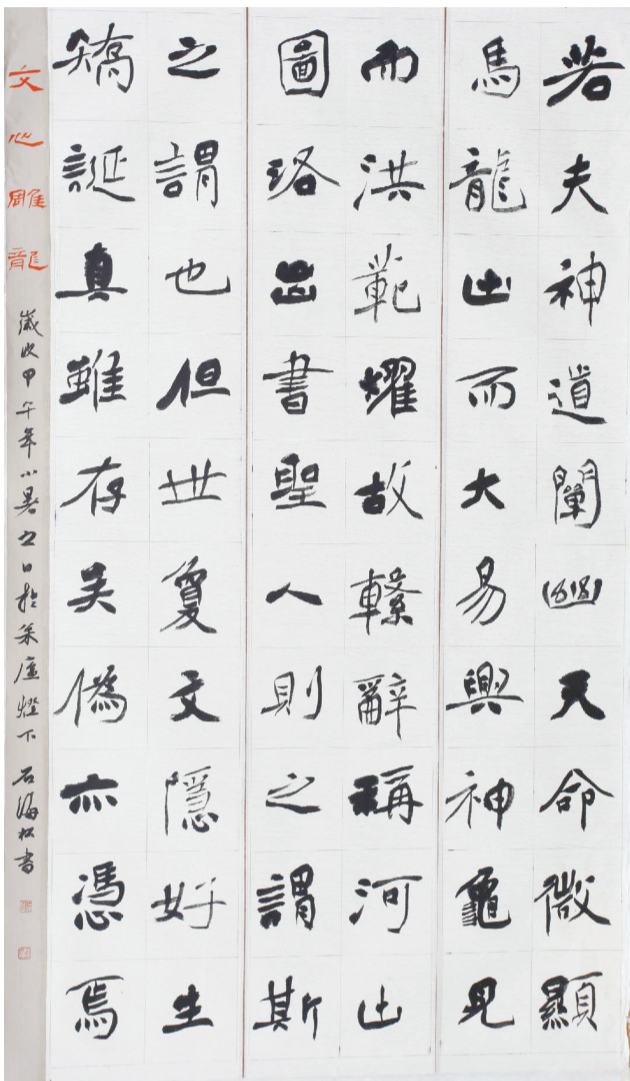 若夫神道闡幽天命微顯
馬龍出而大易興神龜見
而洪範耀故繫辭稱河出
圖珞出書聖人則之謂斯
之謂也但世夐文隱好生
矯誕真雖存矣偽亦憑焉
文心雕龍
歲次甲午年小暑之日於廬燈下 石海松書